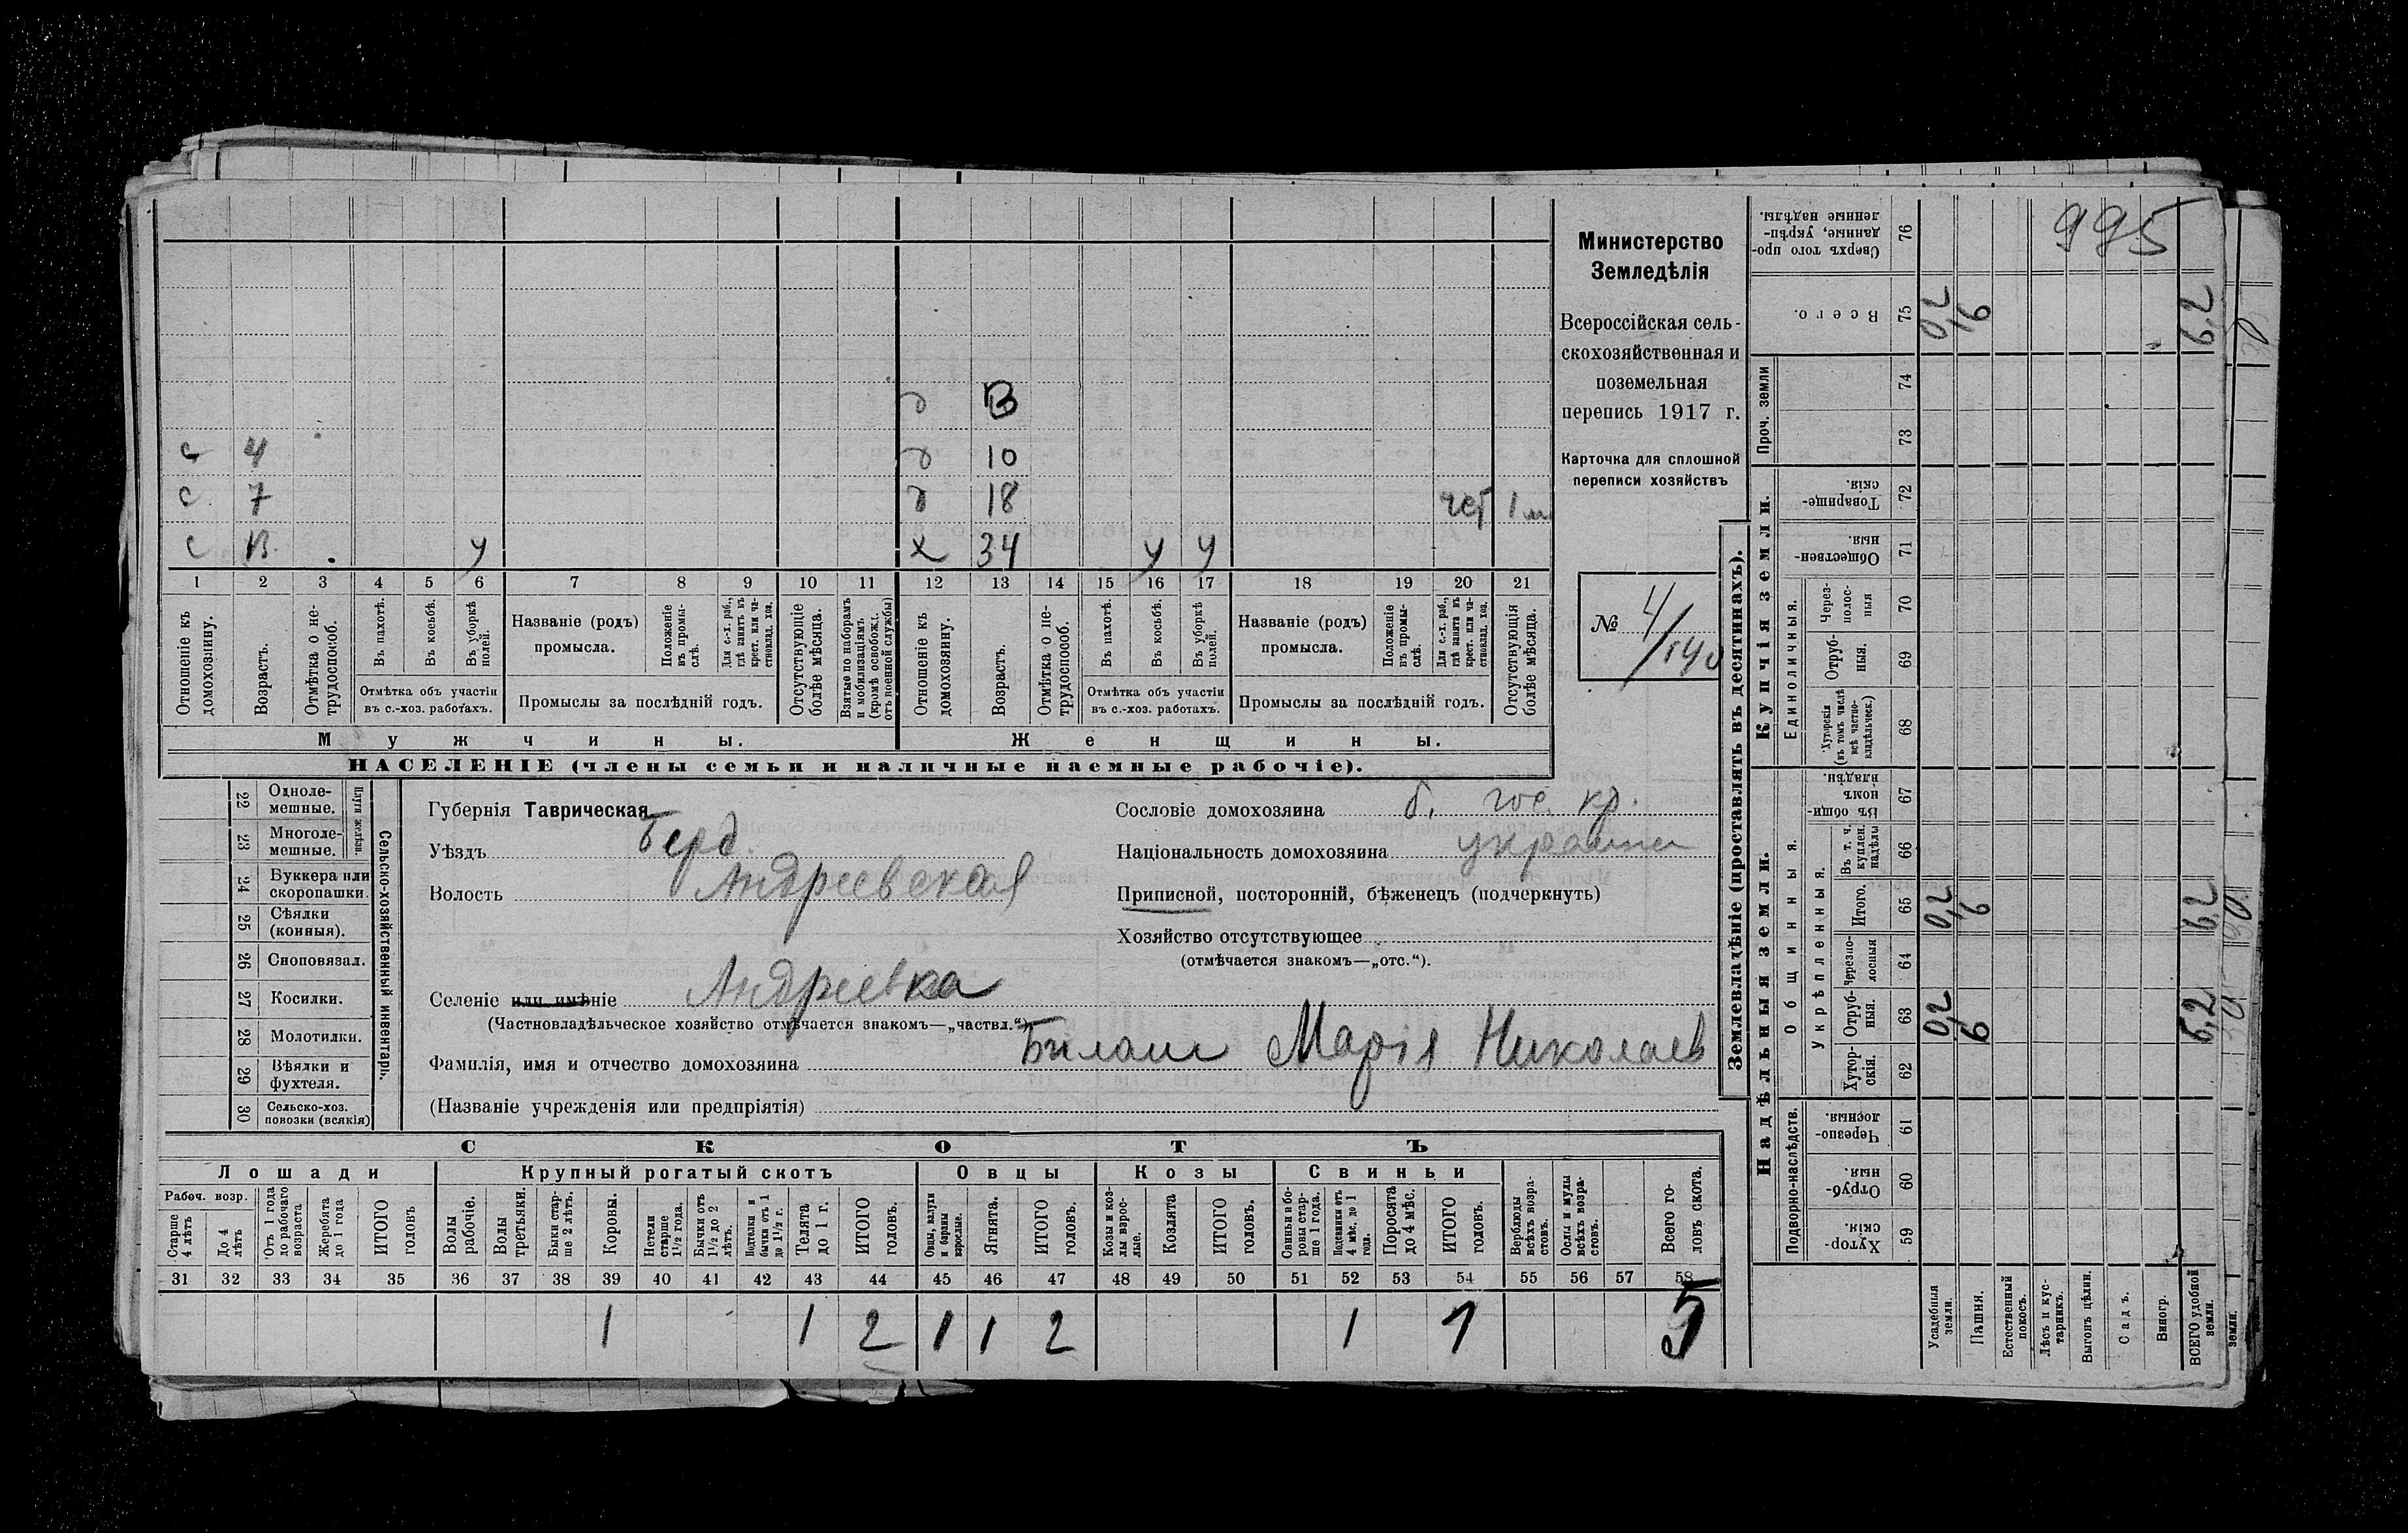 995
Министерство
Земледѣлія
Всероссійская сель-
скохозяйственная и
поземельная
перепись 1917 г.
Карточка для сплошной
переписи хозяйствъ
№ 4/
д
с 4 д 10
с 7 д 18 1 м
с у х 34 у у
1 2 3 4 5 6 7 8 9 10 11 12 13 14 15 16 17 18 19 20 21
Отношеніе къ домохозяину.
Возрастъ.
Отмѣтка о не-трудоспособ.
Въ пахотѣ.
Въ косьбѣ.
Въ уборкѣ полей.
Отмѣтка объ участіи
въ с.-хоз. работахъ.
Названіе (родъ)
промысла.
Положеніе въ промы-слѣ.
Для с.-х. раб., гдѣ занятъ въ крест. или ча-стновлад. хоз.
Промыслы за послѣдній годъ.
Отсутствующіе болѣе мѣсяца.
Взятые по наборамъ и мобилизаціямъ (кромѣ освобожд. отъ военной службы)
Отношеніе къ домохозяину.
Возрастъ.
Отмѣтка о не-трудоспособ.
Въ пахотѣ.
Въ косьбѣ.
Въ уборкѣ полей.
Отмѣтка объ участіи
въ с.-хоз. работахъ.
Названіе (родъ)
промысла.
Положеніе въ промы-слѣ.
Для с.-х. раб., гдѣ занята въ крест. или ча-стновлад. хоз.
Промыслы за послѣдній годъ.
Отсутствующія болѣе мѣсяца.
Мужчины. Женщины.
НАСЕЛЕНІЕ (члены семьи и наличные наемные рабочіе).
22 Одноле-мешные.
23 Многоле-мешные.
Плуги желѣзн.
24 Буккера или скоропашки.
25 Сѣялки (конныя).
26 Сноповязал.
27 Косилки.
28 Молотилки.
29 Вѣялки и фухтеля.
30 Сельско-хоз. повозки (всякія)
Сельско-хозяйственный инвентарь.
Губернія Таврическая
Уѣздъ Берд.
Волость Андреевская
Селеніе или имѣніе Андреевка
(Частновладѣльческое хозяйство отмѣчается знакомъ—„частвл.“)
Фамилія, имя и отчество домохозяина Билаш Марія Николаев
(Названіе учрежденія или предпріятія)
Сословіе домохозяина б. гос. кр.
Національность домохозяина
Приписной, посторонній, бѣженецъ (подчеркнуть)
Хозяйство отсутствующее
(отмѣчается знакомъ—„отс.“).
СКОТЪ
Лошади Крупный рогатый скотъ Овцы Козы Свиньи
Рабоч. возр.
Старше 4 лѣтъ
До 4 лѣтъ
Отъ 1 года до рабочаго возраста
Жеребята до 1 года
ИТОГО головъ
Волы рабочіе.
Волы третьяки.
Быки стар-ше 2 лѣтъ.
Коровы.
Нетели старше 1½ года.
Бычки отъ 1½ до 2 лѣтъ.
Подтелки и бычки отъ 1 до 1½ г.
Телята до 1 г.
ИТОГО головъ.
Овцы, валухи и бараны взрослые.
Ягнята.
ИТОГО головъ.
Козы и коз-лы взрос-лые.
Козлята
ИТОГО головъ.
Свиньи и бо-ровы стар-ше 1 года.
Подсвинки отъ 4 мѣс. до 1 года.
Поросята до 4 мѣс.
ИТОГО головъ.
Верблюды всѣхъ возра-стовъ.
Ослы и мулы всѣхъ возра-стовъ.
Всего го-ловъ скота.
31 32 33 34 35 36 37 38 39 40 41 42 43 44 45 46 47 48 49 50 51 52 53 54 55 56 57 58
1 1 2 1 1 2 1 1 5
Землевладѣніе (проставлять въ десятинахъ).
Надѣльныя земли. Купчія земли.
Подворно-наслѣдств.
Общинныя.
Укрѣпленныя.
Единоличныя.
Проч. земли
Сверхъ того про-данные, укрѣп-ленные надѣлы. 76
Всего. 75 0,2 6 6,2
74
73
Товарище-скія. 72
Обществен-ныя. 71
Через-полос-ныя 70
Отруб-ныя. 69
Хуторскія (въ томъ числѣ всѣ частно-владѣльческ.) 68
Въ общин-номъ владѣн. 67
Въ т. ч. куплен. надѣлы 66
Итого. 65 0,2 6 6,2
Черезпо-лосныя 64
Отруб-ныя. 63 0,2 6 6,2
Хутор-скія. 62
Черезпо-лосныя. 61
Отруб-ныя. 60
Хутор-скія. 59
Усадебныя земли.
Пашня.
Естественный покосъ.
Лѣсъ и кус-тарникъ.
Выгонъ цѣлин.
Садъ.
Виногр.
ВСЕГО удобной земли.
земли.